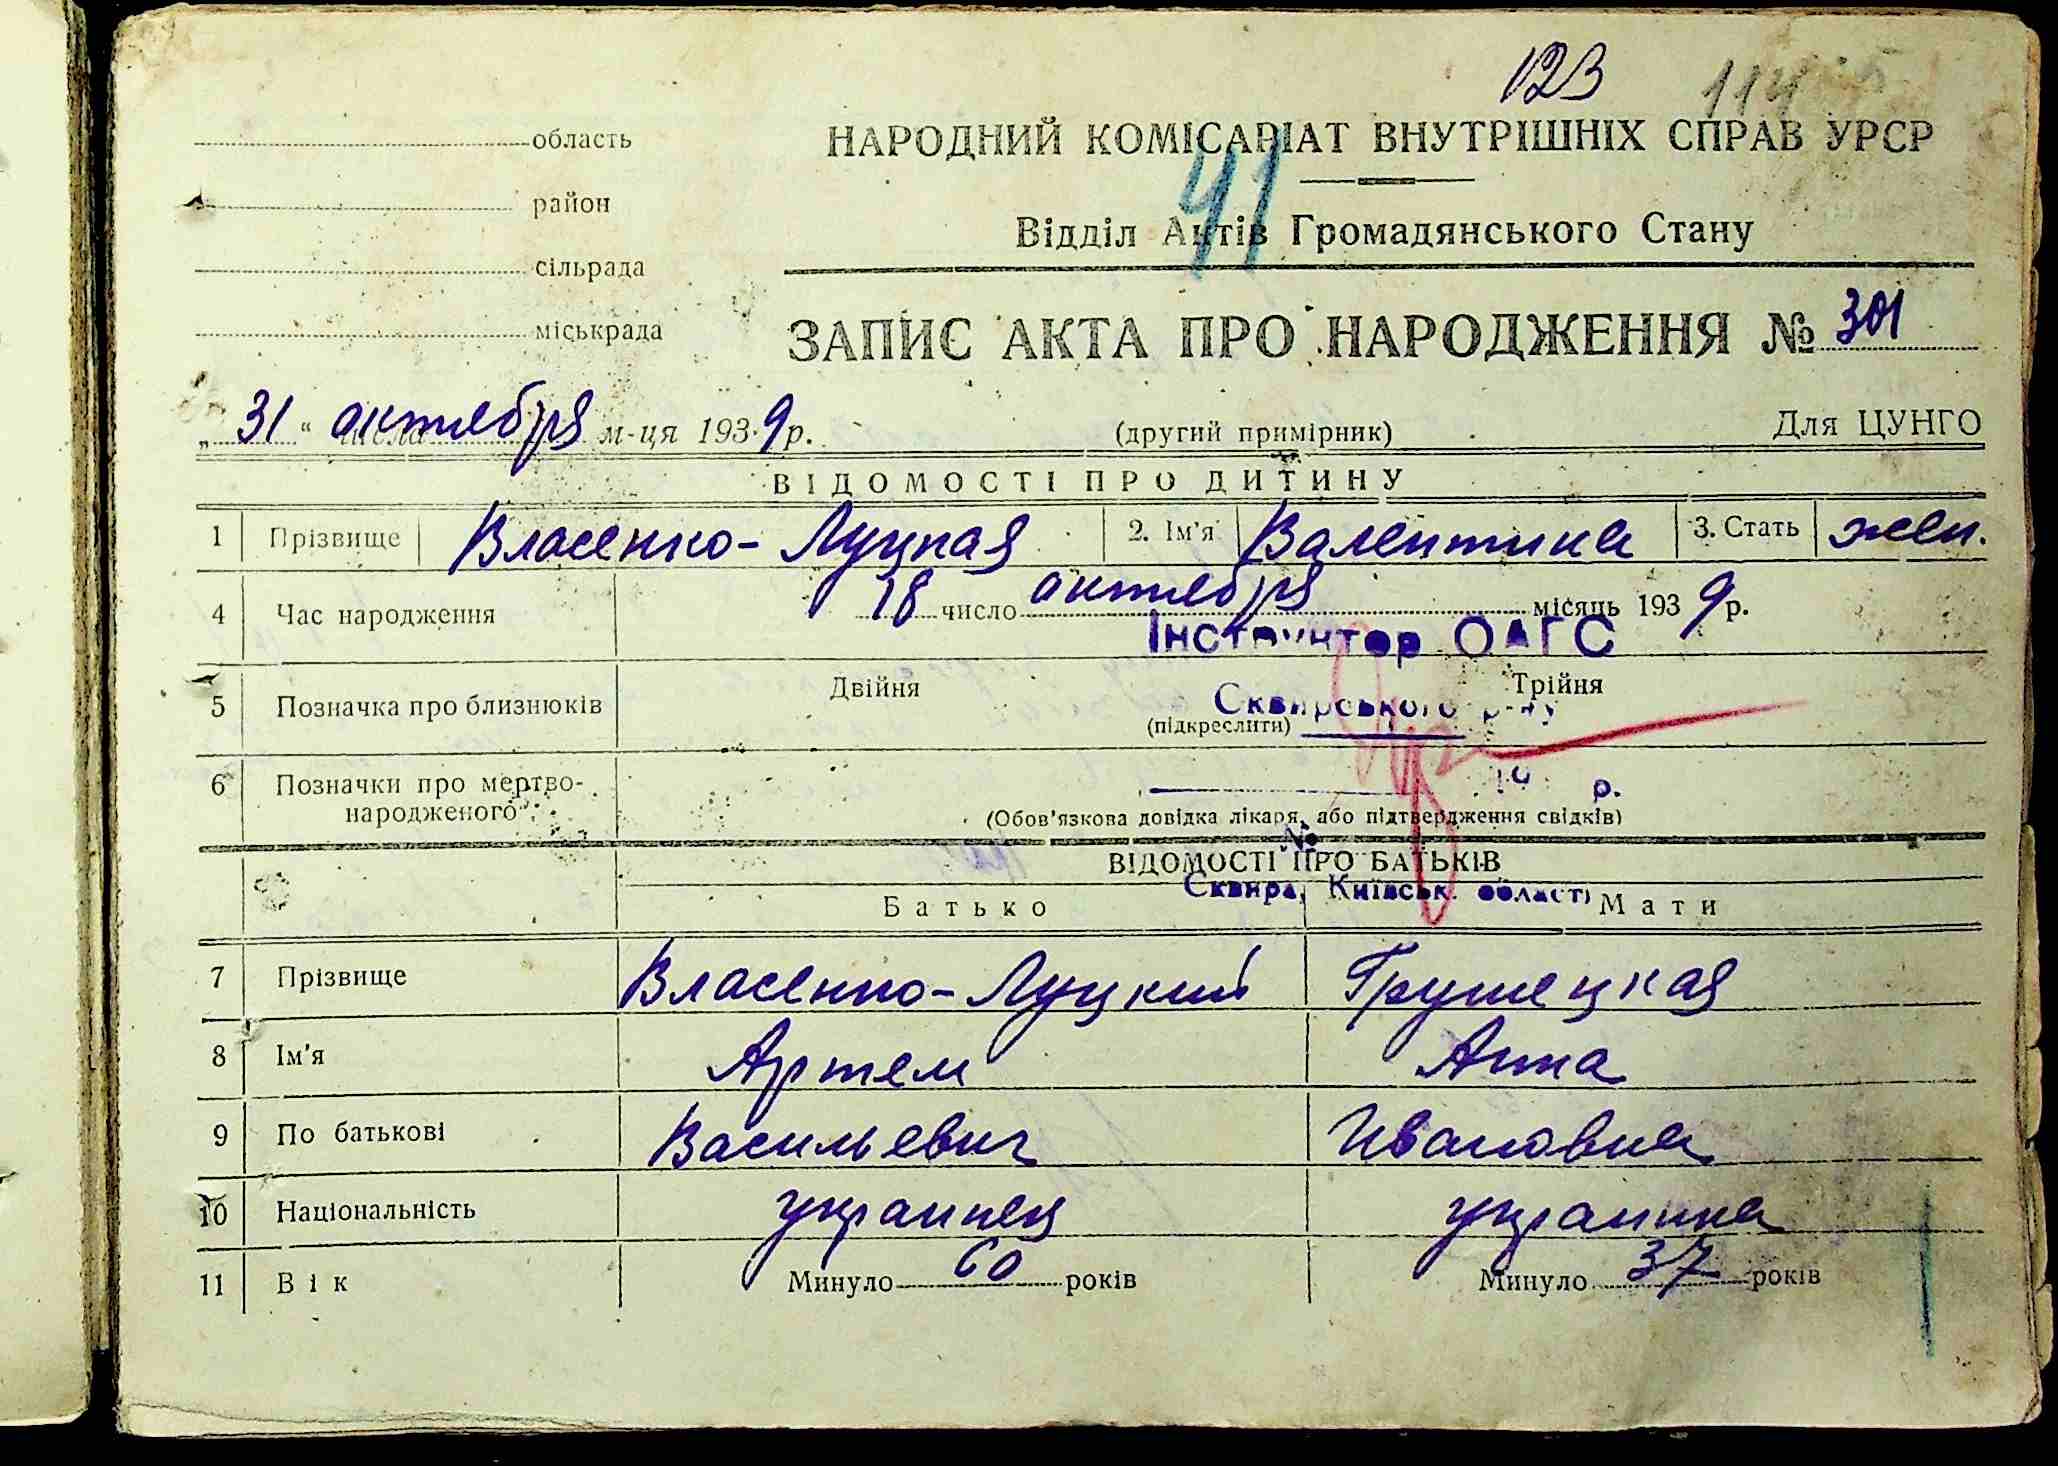 123 114
область
НАРОДНИЙ КОМІСАРІАТ ВНУТРІШНІХ СПРАВ УРСР
район
41
Відділ Актів Громадянського Стану
сільрада
міськрада
ЗАПИС АКТА ПРО НАРОДЖЕННЯ № 301
„31“ числа октября м-ця 1939 р. (другий примірник) Для ЦУНГО
ВІДОМОСТІ ПРО ДИТИНУ
1 Прізвище Власенко-Луцкая 2. Ім'я Валентина 3. Стать жен.
4 Час народження 18 число октября місяць 1939 р.
Інструктор ОАГС
5 Позначка про близнюків Двійня Трійня
Сквирського р-ну
(підкреслити)
6 Позначки про мертво-
народженого
19 р.
(Обов'язкова довідка лікаря, або підтвердження свідків)
№
ВІДОМОСТІ ПРО БАТЬКІВ
Сквира, Київськ. області
Батько Мати
7 Прізвище Власенко-Луцкий Грушецкая
8 Ім'я Артем Анна
9 По батькові Васильевич Ивановна
10 Національність украинец украинка
11 Вік Минуло 60 років Минуло 37 років